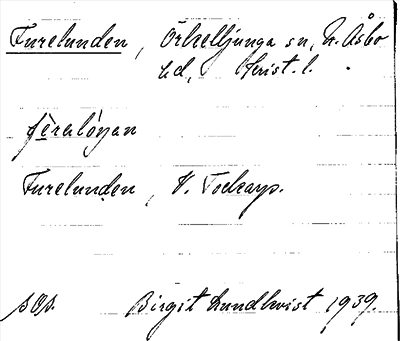 Furelunden, Örkelljunga sn, N. Åsbo
hd, Krist. l.
Furelunden, V. Torkarp.
sOs. Birgit Lundkvist 1939.